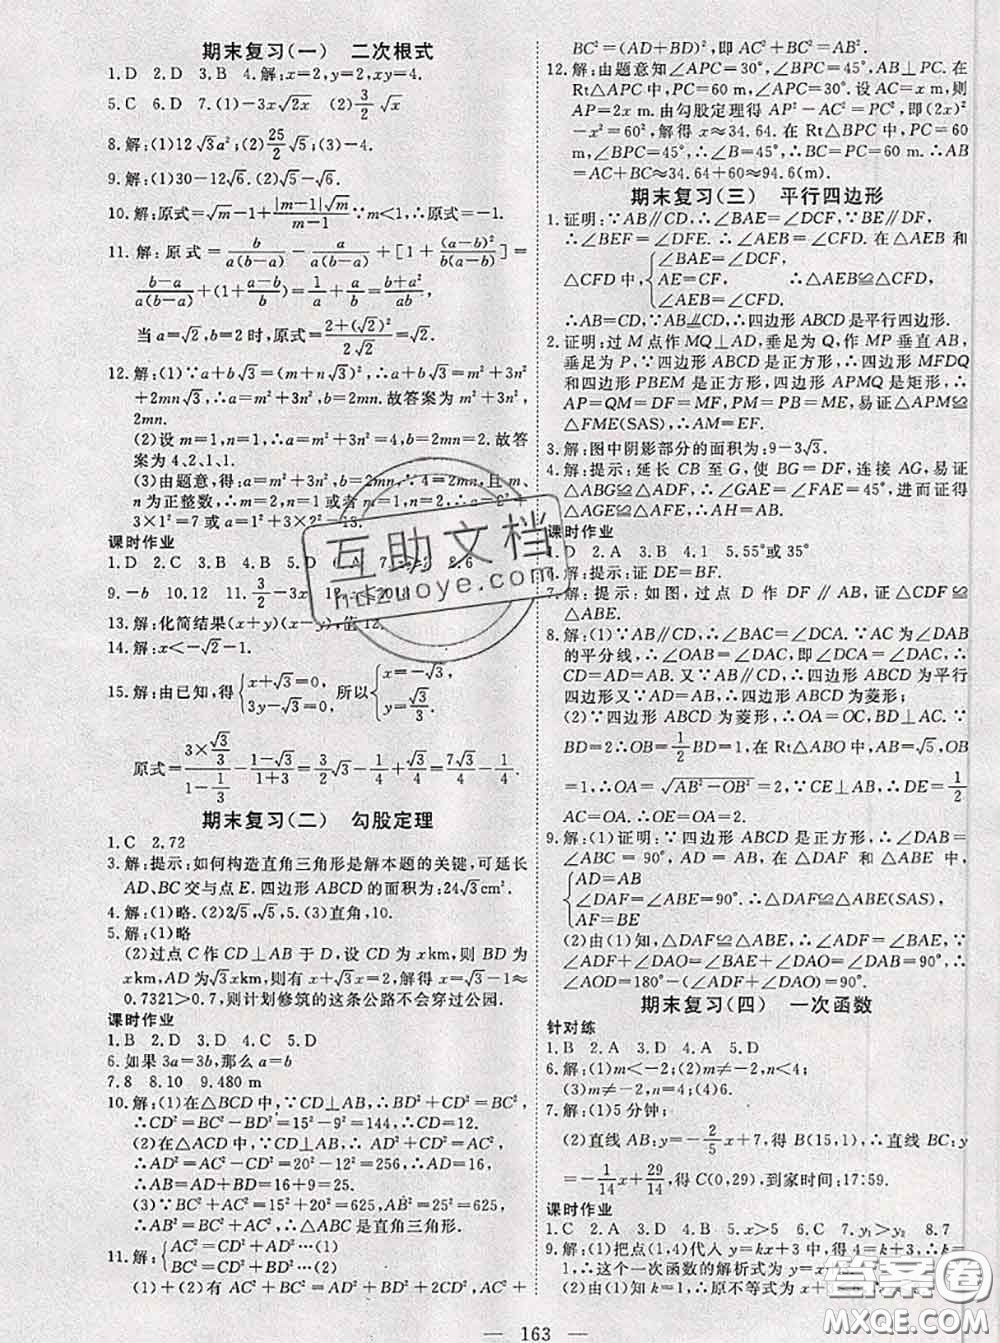 期末复习(一) 二次根式
1.D 2.D 3.B 4.解:x=2,y=2,xy=4.
5.C 6.D 7.(1)-3x√(2x) (2)3/2 √x
8.解:(1)12√3a²;(2)25/2√5;(3)-4.
9.解:(1)30-12√6.
10.解:原式=√m-1+|m-1|√m/(m-1)∵m<1,∴原式=-1.
11.解:原式=b/a(b-a)-a/a(b-a)+[1+(a-b)²/b(a-b)]=
(b-a)/a(b-a)+(1+(a-b)/b)=1/a+a/b=(b+a²)/ab
当a=√2,b=2时,原式=(2+(√2)²)/2√2=√2.
12.解:(1)∵a+b√3=(m+n√3)²,∴a+b√3=m²+3n²
+2mn√3,∴a=m²+3n²,b=2mn.故答案为m²+3n²,
2mn.
(2)设m=1,n=1,∴a=m²+3n²=4,b=2mn=2.故答
案为4、2、1、1.
(3)由题意,得:a=m²+3n²,b=2mn∵4=2mn,且m、
n为正整数,∴m=2,n=1或者m=1,n=2,∴a=2²+
3×1²=7或a=1²+3×2²=13.
课时作业
1.D 2.C 3.B 4.D 5.B 6.A 8.6
9.-b 10.12 11.3/2-3x
13.化简结果(x+y)(x-y),值12.
14.解:x<-√2-1.
15.解:由已知,得{x+√3=0, 3y-√3=0, 所以{x=-√3, y=√3/3.
原式=(3×√3/3)/(1-1/3)-(1-√3)/(1+3)=3/2√3-1/4+√3/4=7√3/4-1/4
期末复习(二) 勾股定理
1.C 2.72
3.解:提示:如何构造直角三角形是解本题的关键,可延长
AD、BC交与点E.四边形ABCD的面积为:24√3cm².
4.解:(1)略.(2)2√5,√5,5.(3)直角,10.
5.解:(1)略
(2)过点C作CD⊥AB于D,设CD为xkm,则BD为
xkm,AD为√3xkm,则有x+√3x=2,解得x=√3-1≈
0.7321>0.7,则计划修筑的这条公路不会穿过公园.
课时作业
1.B 2.D 3.D 4.D 5.D
6.如果3a=3b,那么a=b
7.8 8.10 9.480 m
10.解:(1)在△BCD中,∵CD⊥AB,∴BD²+CD²=BC²,
∴CD²=BC²-BD²=15²-9²=144,∴CD=12.
(2)在△ACD中,∵CD⊥AB,∴AD²+CD²=AC²,
∴AD²=AC²-CD²=20²-12²=256,∴AD=16,
∴AB=AD+BD=16+9=25.
(3)∵BC²+AC²=15²+20²=625,AB²=25²=625,
∴AB²=BC²+AC²,∴△ABC是直角三角形.
11.解:{AC²=CD²+AD²…(1) BC²=CD²+BD²…(2)
(1)+(2)有AC²+BC²=2CD²+AD²+BD²=2AD·BD+AD²+BD²
BC²=(AD+BD)²,即AC²+BC²=AB².
12.解:由题意知∠APC=30°,∠BPC=45°,AB⊥PC.在
Rt△APC中,∠APC=30°,PC=60 m,设AC=x m,则
AP=2x m.由勾股定理得AP²-AC²=PC²,即(2x)²
-x²=60²,解得x≈34.64.在Rt△BPC中,PC=60
m,∠BPC=45°,∴∠B=45°,∴BC=PC=60 m,∴AB
=AC+BC≈34.64+60≈94.6(m).
期末复习(三) 平行四边形
1.证明:∵AB∥CD,∴∠BAE=∠DCF,∵BE∥DF,
∴∠BEF=∠DFE.∴∠AEB=∠CFD.在△AEB和
△CFD中,{∠BAE=∠DCF, AE=CF, ∠AEB=∠CFD. ∴△AEB≌△CFD.
∴AB=CD,∵AB∥CD,∴四边形ABCD是平行四边形.
2.证明:过M点作MQ⊥AD,垂足为Q,作MP垂直AB,
垂足为P,∵四边形ABCD是正方形,∴四边形MFDQ
和四边形PBEM是正方形,四边形APMQ是矩形,
∴AP=QM=DF=MF,PM=PB=ME,易证△APM≌
△FME(SAS),∴AM=EF.
3.解:图中阴影部分的面积为:9-3√3.
4.解:提示:延长CB至G,使BG=DF,连接AG,易证
△ABG≌△ADF,∴∠GAE=∠FAE=45°,进而证得
△AGE≌△AFE,∴AH=AB.
课时作业
1.D 2.A 3.B 4.1 5.55°或35°
6.解:提示:证DE=BF.
7.解:提示:如图,过点D作DF∥AB,证△CDF≌
△ABE.
8.解:(1)∵AB∥CD,∴∠BAC=∠DCA.∵AC为∠DAB
的平分线,∴∠OAB=∠DAC,即∠DCA=∠DAC,∴
CD=AD=AB.又∵AB∥CD,∴四边形ABCD为平行
四边形又∵AD=AB,∴四边形ABCD为菱形;
(2)∵四边形ABCD为菱形,∴OA=OC,BD⊥AC,∵
BD=2∴OB=1/2BD=1,在Rt△ABO中,AB=√5,OB
=1,∴OA=√(AB²-OB²)=2.∵CE⊥AB,∴OE=1/2
AC=OA,∴OE=OA=2.
9.解:(1)证明:∵四边形ABCD是正方形,∴∠DAB=
∠ABC=90°,AD=AB,在△DAF和△ABE中,
{AD=AB ∠DAF=∠ABE=90°.∴△DAF≌△ABE(SAS), AF=BE
(2)由(1)知,△DAF≌△ABE,∴∠ADF=∠BAE,∵
∠ADF+∠DAO=∠BAE+∠DAO=∠DAB=90°,∴
∠AOD=180°-(∠ADF+∠DAO)=90°.
期末复习(四) 一次函数
针对练
1.B 2.A 3.D 4.A 5.D
6.解:(1)m<-2;(2)m≠-2,n<4;
(3)m≠-2,n=4;(4)6.
7.解:(1)5分钟;
(2)直线AB:y=-2/5x+7,得B(15,1),∴直线BC:y
=-1/14x+29/14,得C(0,29),到家时间:17:59.
课时作业
1.C 2.A 3.D 4.B 5.x>5 6.C 7.y₁>y₂ 8.7
9.解:(1)把点(1,4)代人y=kx+3中,得4=k+3,∴k=
1,∴这个一次函数的解析式为:y=x+3.
(2)由(1)知k=1,∴原不等式
163
互助文档
hdzuoye.com
答案圈
MXQE.COM